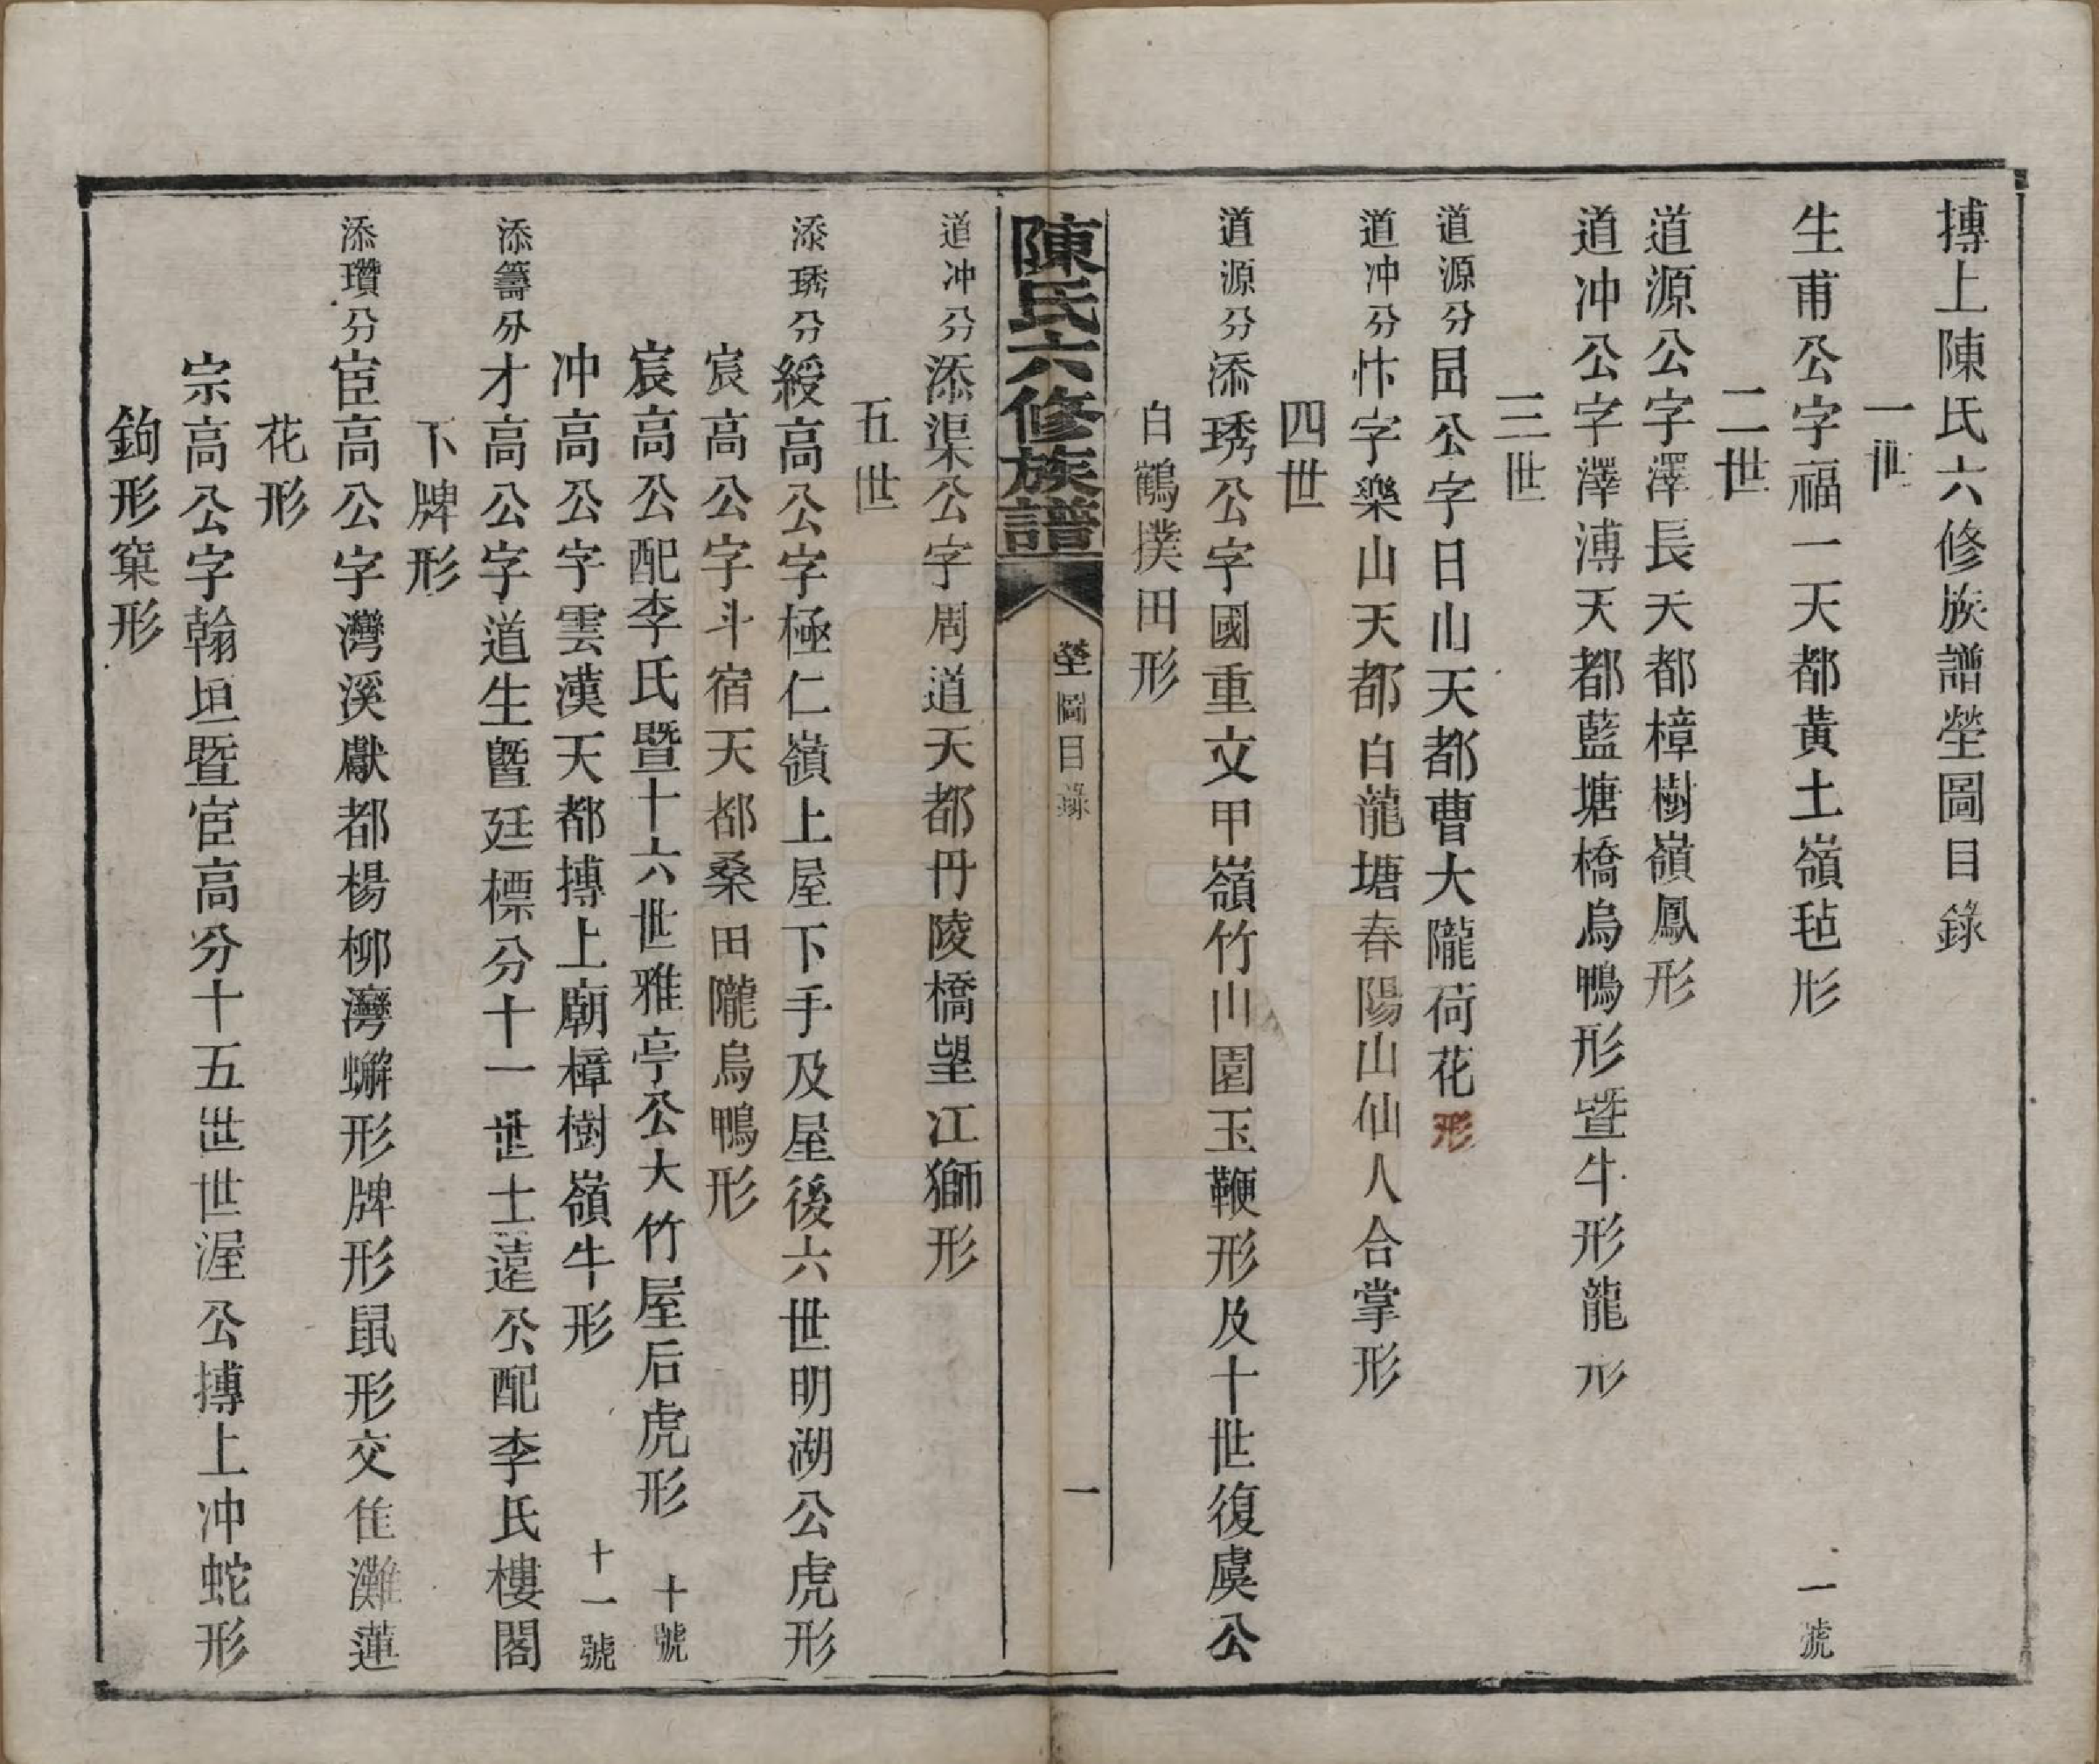 搏上陳氏六修族譜塋圖目錄
一世
生甫公字福一天都黃土嶺毡形 一號
二世
道源公字澤長天都樟樹嶺鳳形
道冲公字澤溥天都藍塘橋烏鴨形暨牛形龍形
三世
道源分 公字日山天都曹大隴荷花形
道冲分 忭字樂山天都白龍塘春陽山仙人合掌形
四世
道源分 添琇公字國重文甲嶺竹山園玉鞭形及十世復虞公
白鶴撲田形
陳氏六修族譜 塋圖目錄 一
道冲分 添渠公字周道天都丹陵橋望江獅形
五世
添琇分 綬高公字極仁嶺上屋下手及屋後六世明湖公虎形
宸高公字斗宿天都桑田隴烏鴨形
宸高公配李氏暨十六世雅亭公大竹屋后虎形 十號
冲高公字雲漢天都搏上廟樟樹嶺牛形 十一號
添籌分 才高公字道生暨廷標分十一世士遠公配李氏樓閣
下牌形
添瓚分 宦高公字灣溪獻都楊柳灣蠏形牌形鼠形交隹灘蓮
花形
宗高公字翰垣暨宦高分十五世世渥公搏上冲蛇形
鉤形窠形